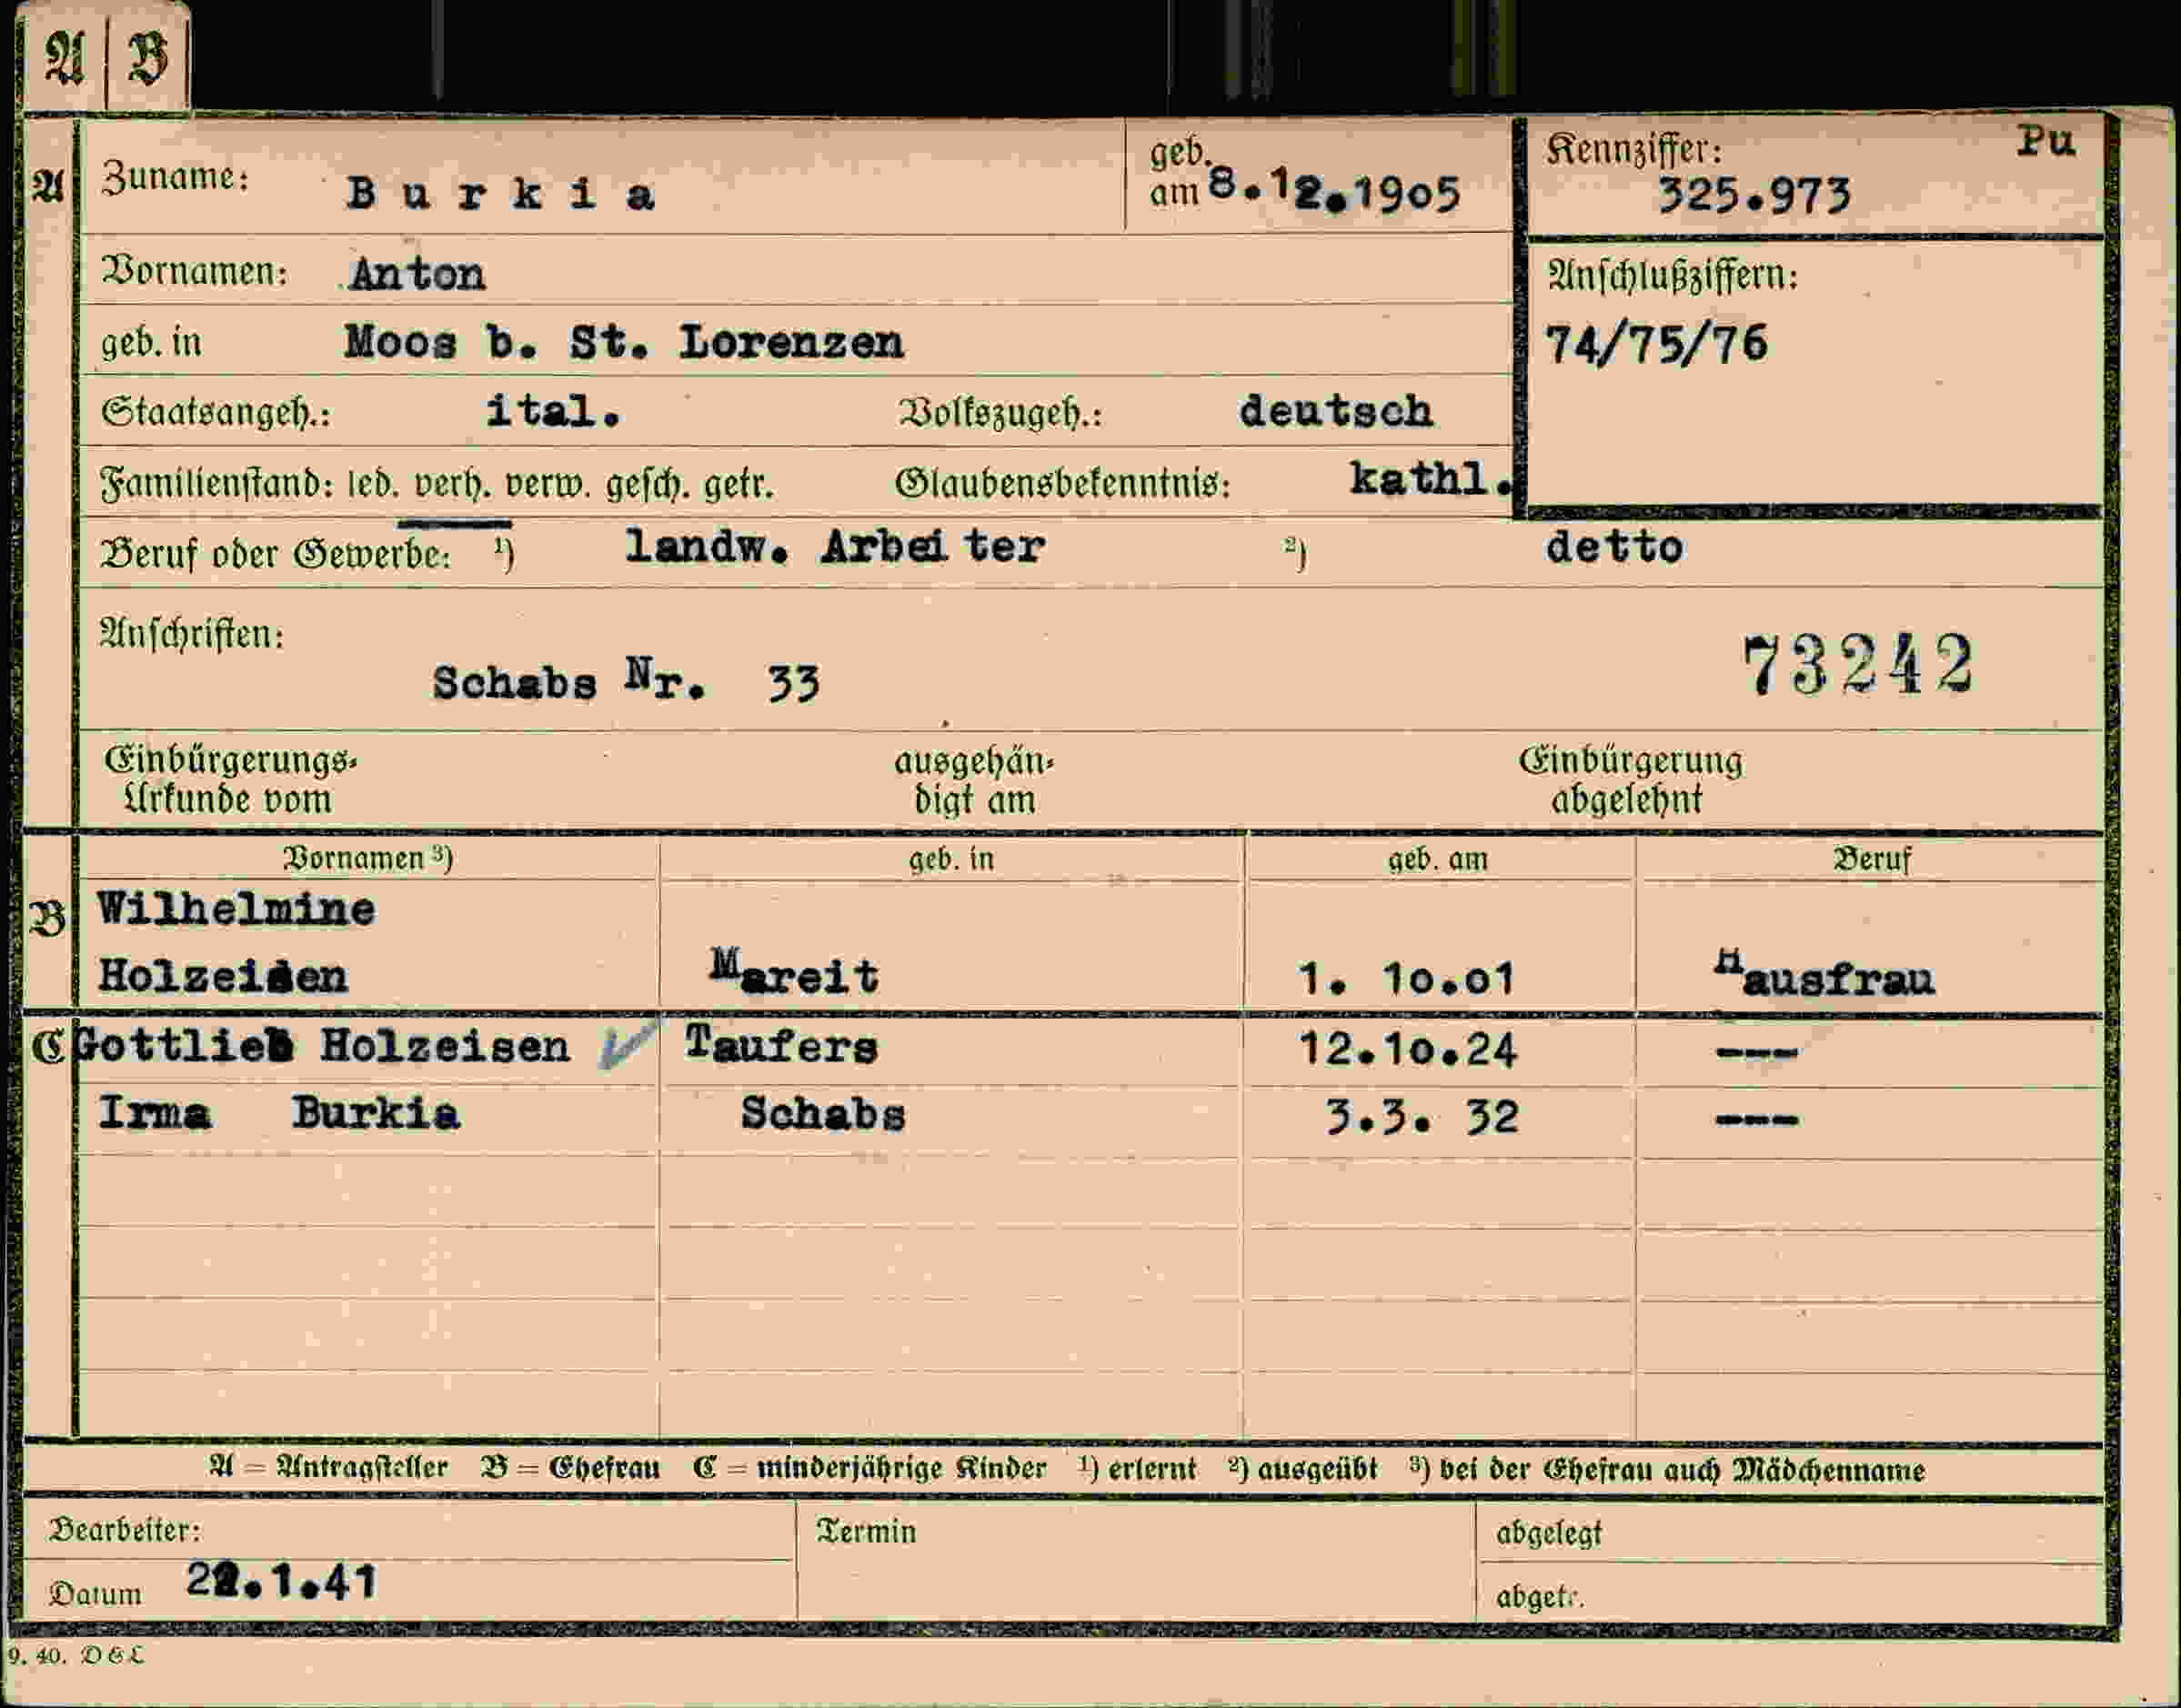 A B
A Zuname: Burkia geb. am 8.12.1905 Kennziffer: 325.973 Pu
Vornamen: Anton Anschlußziffern:
geb. in Moos b. St. Lorenzen 74/75/76
Staatsangeh.: ital. Volkszugeh.: deutsch
Familienstand: led. verh. verw. gesch. getr. Glaubensbekenntnis: kathl.
Beruf oder Gewerbe: 1) landw. Arbeiter 2) detto
Anschriften:
Schabs Nr. 33 73242
Einbürgerungs- ausgehän- Einbürgerung
Urkunde vom digt am abgelehnt
Vornamen 3) geb. in geb. am Beruf
B Wilhelmine
Holzeisen Mareit 1. 10.01 Hausfrau
C Gottlieb Holzeisen Taufers 12.10.24 ---
Irma Burkia Schabs 3.3. 32 ---
A = Antragsteller B = Ehefrau C = minderjährige Kinder 1) erlernt 2) ausgeübt 3) bei der Ehefrau auch Mädchenname
Bearbeiter: Termin abgelegt
Datum 22.1.41 abgetr.
9. 40. D & L